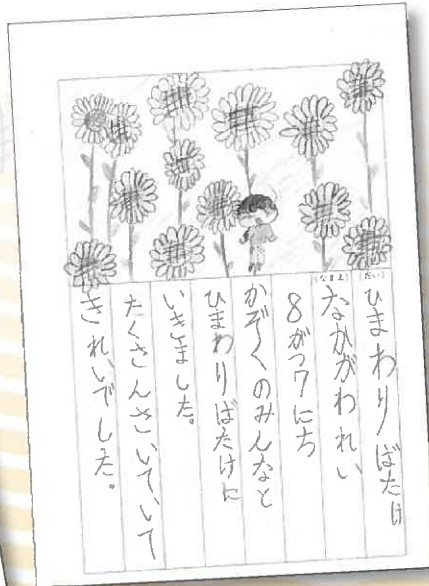 (だい)
ひまわりばたけ
(なまえ)
なかがわれい
8がつ7にち
かぞくのみんなと
ひまわりばたけに
いきました。
たくさんさいていて
きれいでした。